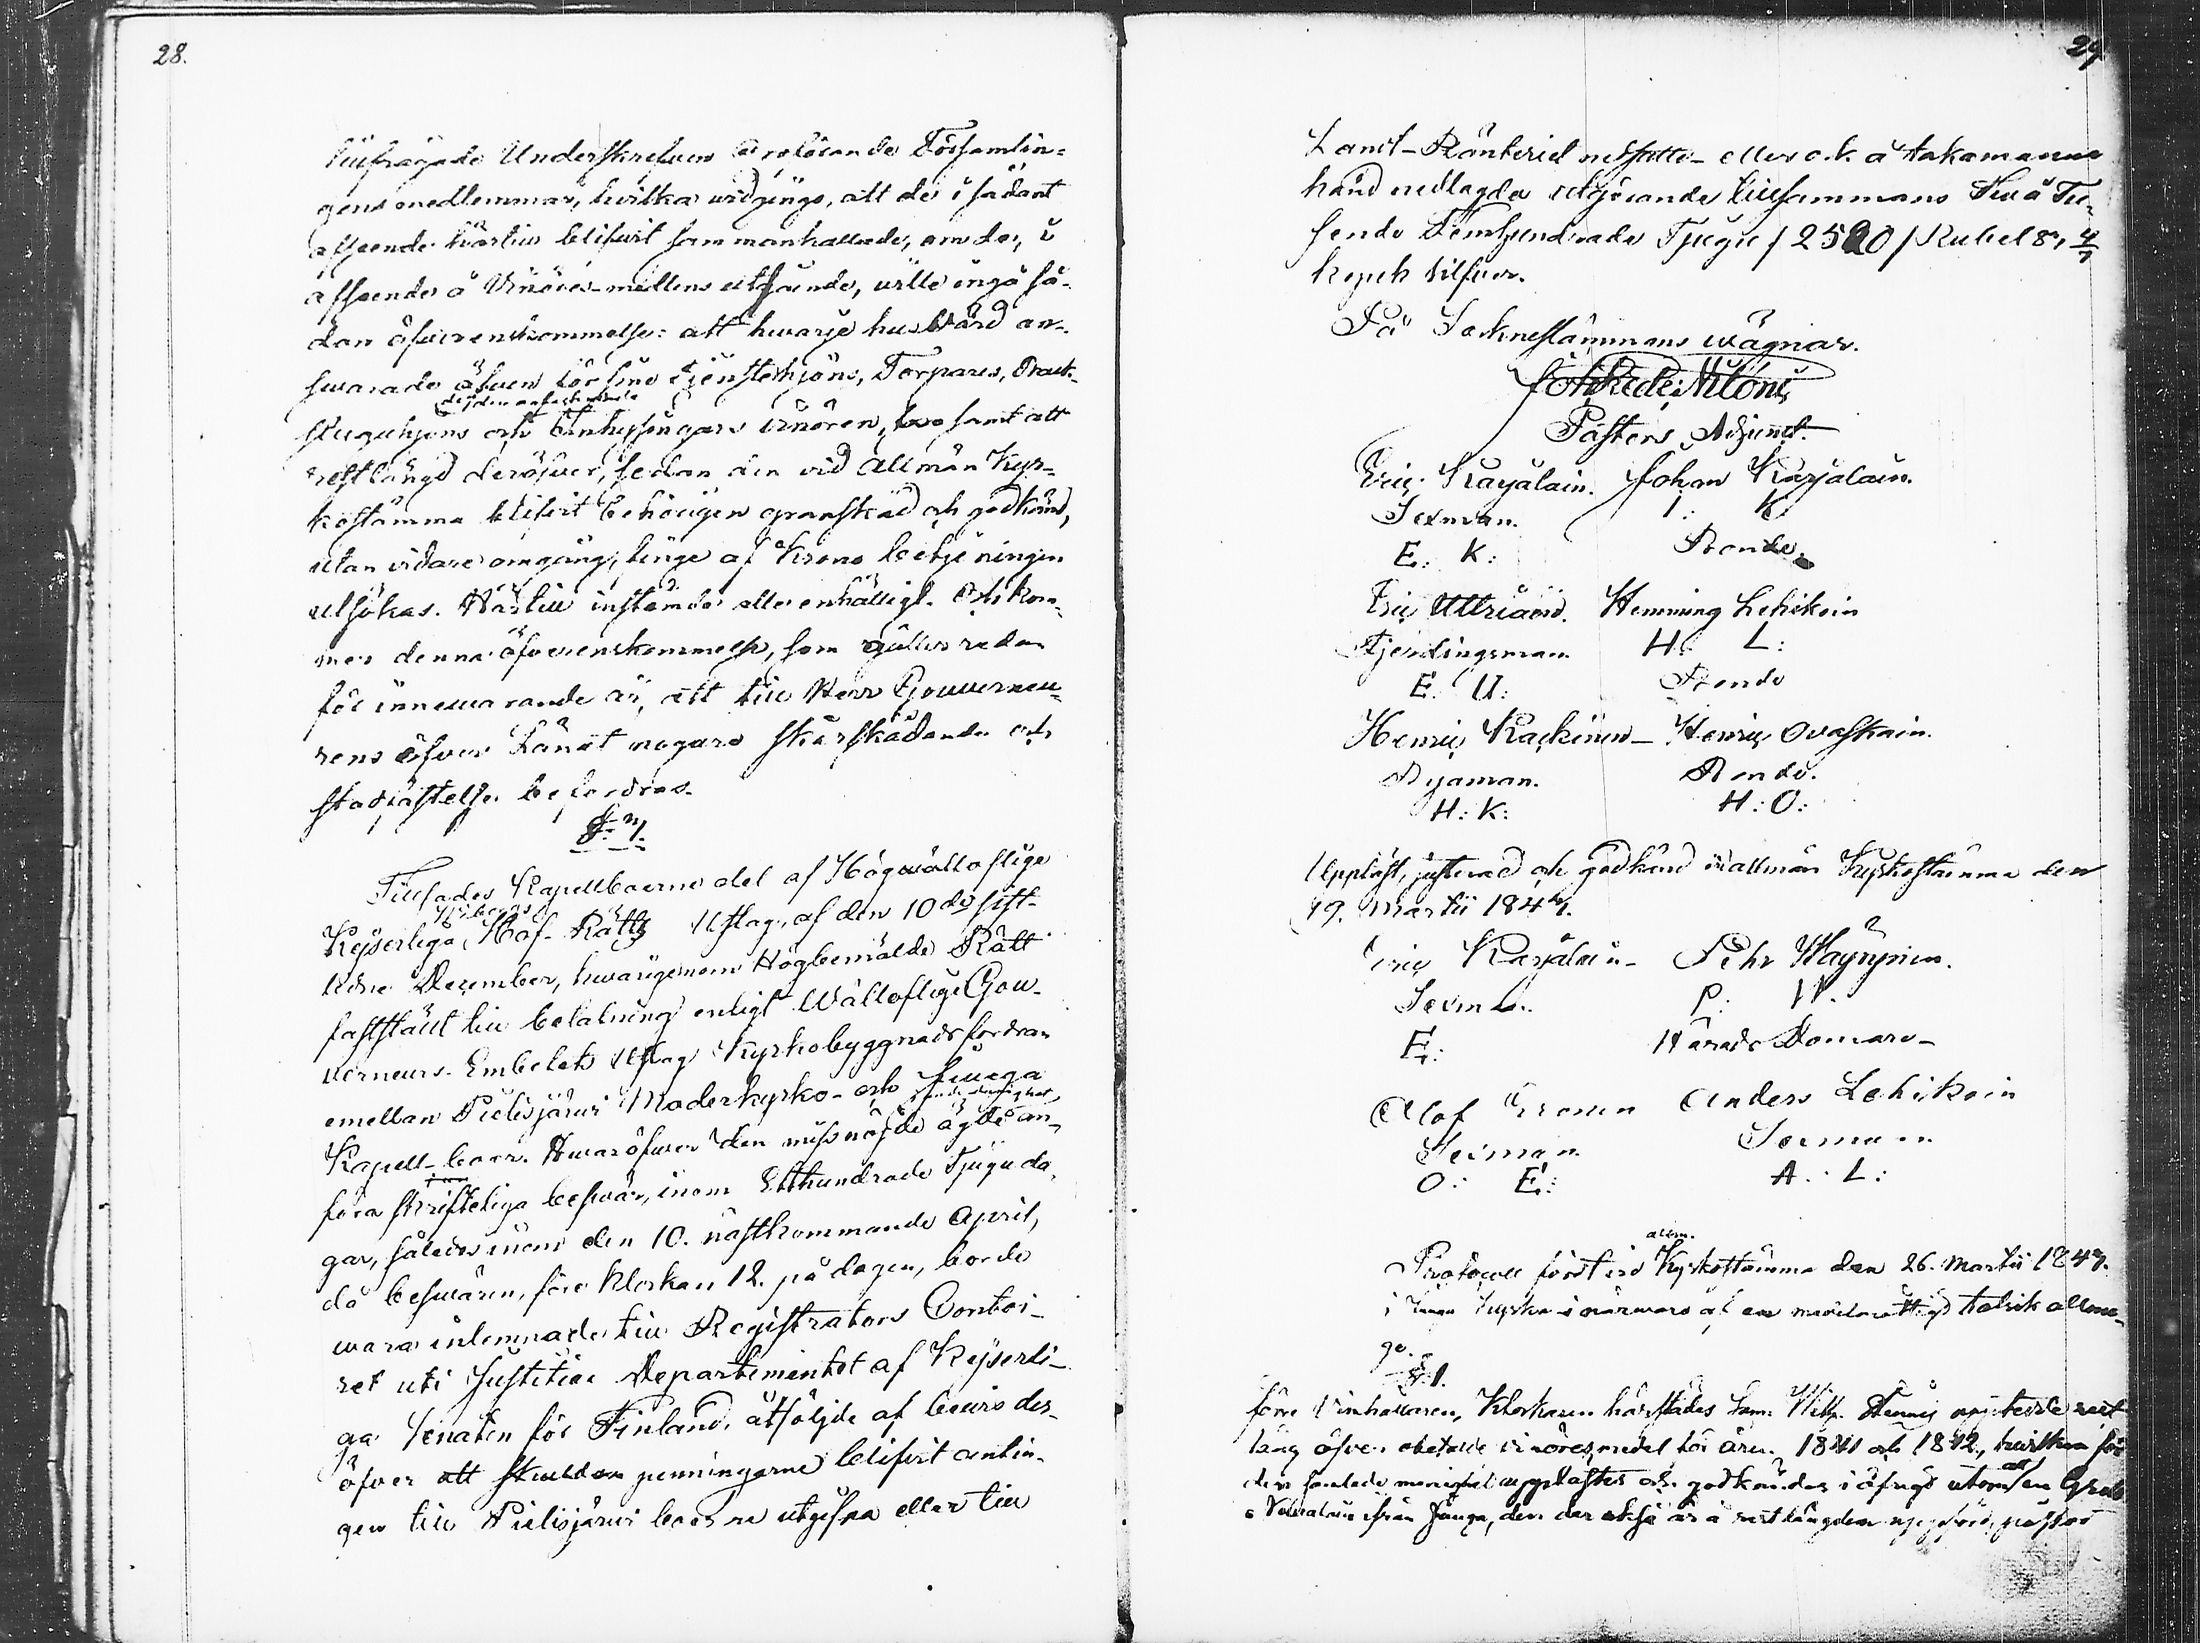 28.
tillfrågade Underskrefven Församlin-
gens medlemmar, hvilka vidgingo, att de i sådant
afseende härtills blifvit sammankallade, om de, i
afseende å Vinöres-medlens utgående, wille ingå så-
dan öfverenskommelse: att hwarje husbård an-
swarade äfven för sine tjenstehjons, Torpares,
stuguhjons och Einhysingars vinören, samt att
restlängd deröfver, sedan den vid allmän Kyr-
kostämma blifvit behörigen granskad och godkänd,
utan vidare omgång, finge af Krono betjeningen
utsökas. Härtill instämde alle enhälligt. Och kom-
mer denna öfverenskommelse, som gäller redan
för innewarande år, att till Herr Gouverneu-
rens öfver Länet nogare skärskådande och
stadfästelse befordras.
§. 7.
Tillsades Kapellboerne del af Högwälloflige
Wiborgs
Kejserliga Hof-Rätts Utslag, af den 10de sist-
lidne December, hwarigenom Högbemälde Rätt
fastställt till betalning enligt Wälloflige Gou-
verneurs-Embetets Utslag Kyrkobyggnads fordran
emellan Pielisjärvi Moderkyrko- och Juuga
Kapell-boer. Hwaröfver den missnöjde ägde an-
föra skrifteliga beswär, inom Etthundrade Tjugu da-
gar, således inom den 10. nästkommande April,
då beswären, före klockan 12. på dagen, borde
wara inlemnade till Registrators Contoi-
ret uti Justitiæ Departementet af Kejserli-
ga Senaten för Finland, åtföljde af bewis der-
öfver att penningarne blifvit antin-
gen till Pielisjärvi boerne utgifna eller till
29
Landt-Ränteriet nedsatte- eller ock å takomanna
hand nedlagda utgörande tillsammans Två Tu-
sende Femhundrade Tjugu /2520/ Rubel 8 4/7
kopek silfver.
På Socknestämmans wägnar.
Pastors Adjunct.
Eric Karjalain. Johan Karjalain.
Sexman. I: K:
E: K: Bonde.
Eric Uttriain. Hemming Lehikoin
Fjerdingsman H: L:
E: U: Bonde
Henric Kackinen- Henric Ovaskain.
Byaman. Bonde.
H: K: H: O:
Uppläst, justerad och godkänd wid allmän Kyrkostämma den
19. Martii 1847.
Eric Karjalain- Pehr Häyrynen.
Sexm. P: H.
E: Härads Domare-
Olof Eronen Anders Lehikoin
Sexman Sexman.
O: E: A: L:
allm.
Protocoll fördt vid Kyrkostämma den 26. Martii 1847.
i Juuga kyrka i närwaro af en talrik allmo-
ge.
§. 1.
förre Klockaren härstädes uppteedde rest
läng öfver obetalde vinöresmedel för åren 1841 och 1842, hvilken för
den samlade menighet upplästes och godkändes i öfrigt utom
ifrån Juuga, den der också är å restlängden